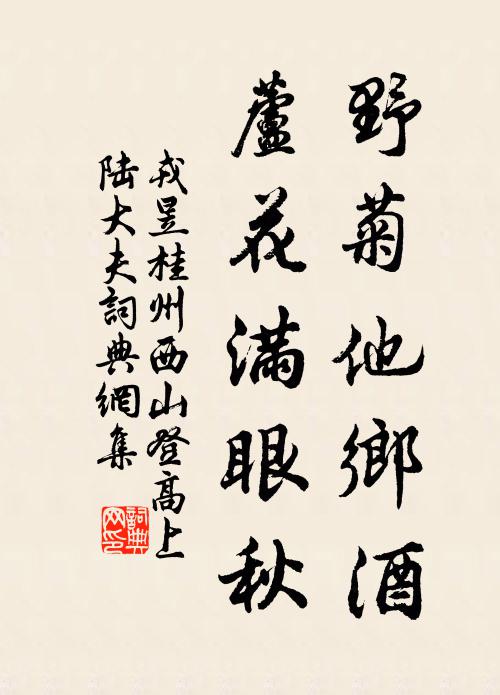 野菊他鄉酒
蘆花滿眼秋
戎昱桂州西山登高上
陆大夫詞典網集
詞典
网印